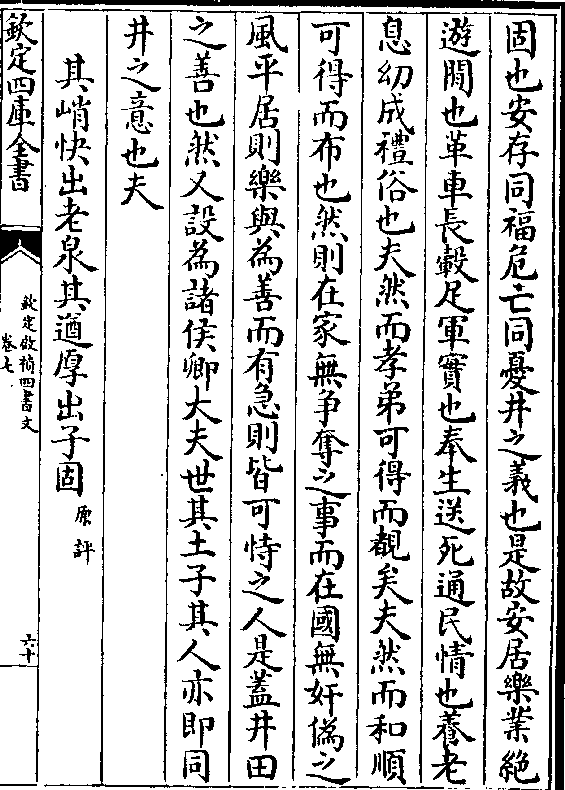 固也安存同福危亡同憂井之義也是故安居樂業絕
遊閒也革車長轂足軍實也奉生送死通民情也養老
息幼成禮俗也夫然而孝弟可得而覩矣夫然而和順
可得而布也然則在家無爭奪之事而在國無奸偽之
風平居則樂與為善而有急則皆可恃之人是蓋井田
之善也然又設為諸侯卿大夫世其土子其人亦即同
井之意也夫
其峭快出老泉其遒厚出子固
原評
欽定四庫全書
欽定啟禎四書文
卷七
六十